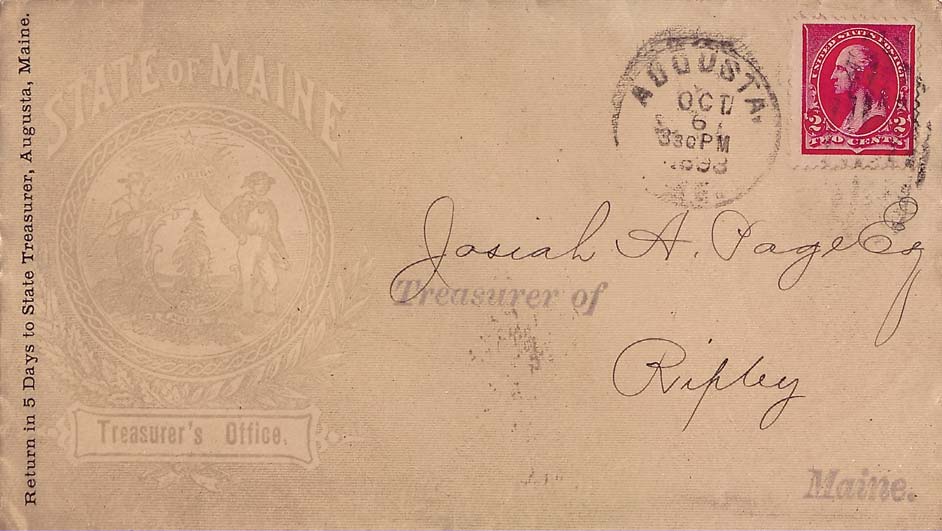 Return in 5 Days to State Treasurer, Augusta, Maine.
STATE OF MAINE
Treasurer's Office.
AUGUSTA,
OCT
6
330PM
1893
ME.
UNITED STATES POSTAGE
2 2
TWO CENTS
Josiah A. Page Esq
Treasurer of
Ripley
Maine.